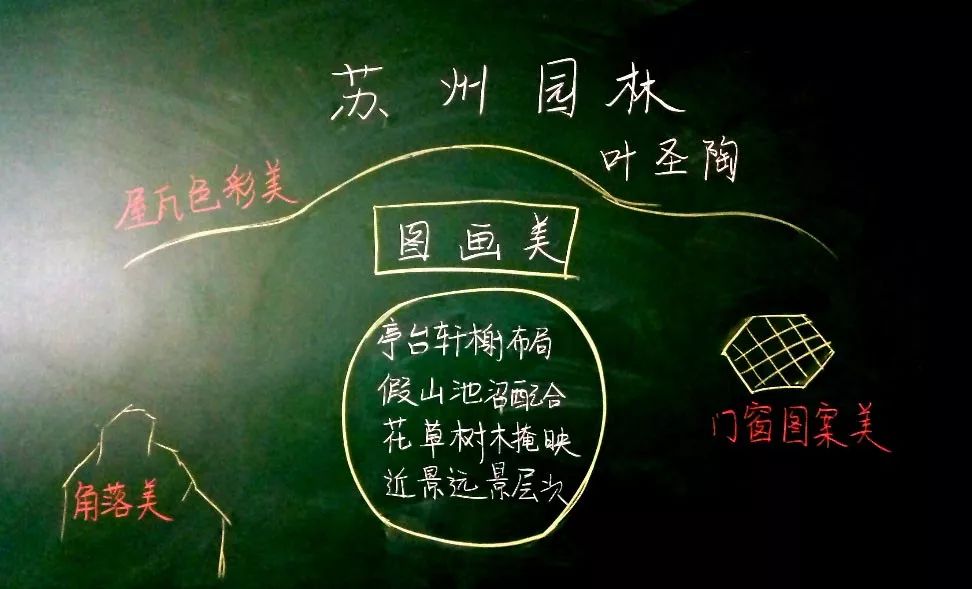 苏州园林
叶圣陶
屋瓦色彩美
图画美
亭台轩榭布局
假山池沼配合
花草树木掩映
近景远景层次
门窗图案美
角落美